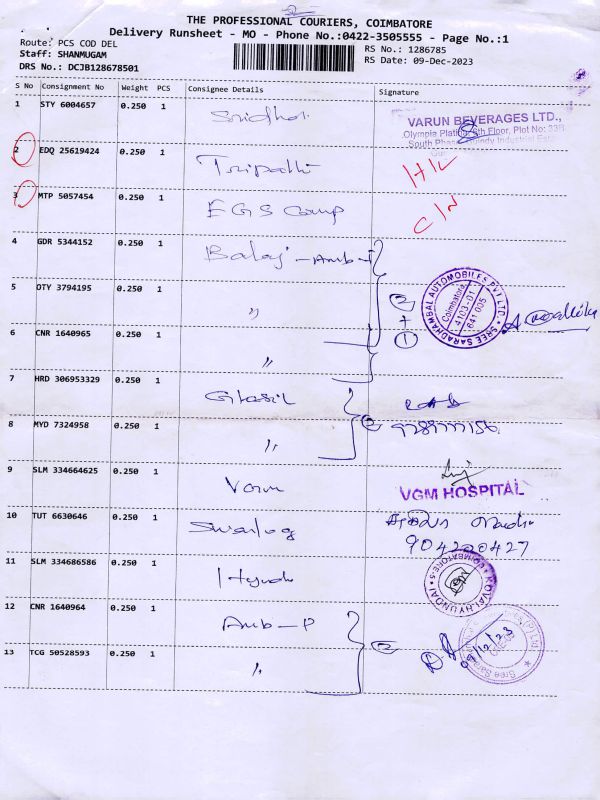 THE PROFESSIONAL COURIERS, COIMBATORE
Delivery Runsheet - MO - Phone No.:0422-3505555 - Page No.:1
Route: PCS COD DEL
Staff: SHANMUGAM
DRS No.: DCJB128678501
RS No.: 1286785
RS Date: 09-Dec-2023
S No Consignment No Weight PCS Consignee Details Signature
1 STY 6004657 0.250 1 Sridhar
VARUN BEVERAGES LTD.,
2 EDQ 25619424 0.250 1 Tripathi
3 MTP 5057454 0.250 1 EGS Comp
4 GDR 5344152 0.250 1 Balaj - Amb-
5 OTY 3794195 0.250 1 "
2 + 1
SREE SARADHAMBAL AUTOMOBILES PVT LTD.
Coimbatore
4103-01
641 005
6 CNR 1640965 0.250 1 "
7 HRD 306953329 0.250 1
8 MYD 7324958 0.250 1 " 2
9 SLM 334664625 0.250 1
VGM HOSPITAL
10 TUT 6630646 0.250 1
904220427
11 SLM 334686586 0.250 1
KOVAI HYUNDAI
COIMBATORE-5
12 CNR 1640964 0.250 1 Amb-P
13 TCG 50528593 0.250 1 " 2
09/12/23